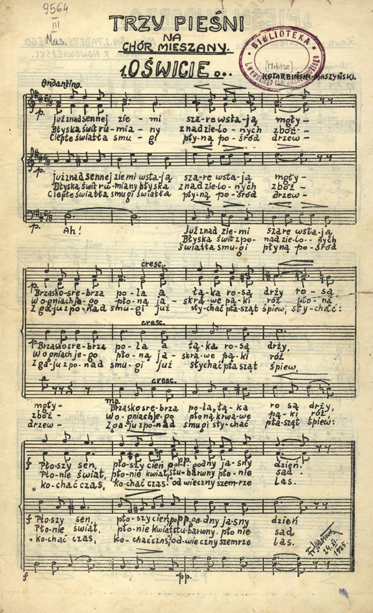 9564
III
Mus.
TRZY PIEŚNI
NA
CHÓR MIESZANY.
1. OŚWICIE...
BIBLIOTEKA
KOTARBIŃSKI-MASZYŃSKI.
Andantino.
już nad sennej zie - mi sza - re wsta - ją moty -
Błyska świt ru - mia - ny znad zie - lo - nych zbóż -
Ciepłe światła smu - gi płyną po - śród drzew -
już nad sennej ziemi wsta - ją sza - re wsta - ją moty -
Błyska świt rumiany błyska znad zie - lo - nych zbóż -
Ciepłe światła smugi światła płyną po - śród drzew -
Ah! Już nad ziemi szare wstają
Błyska świt z po - nad zie - lo - nych
światła smugi płyną po śród
cresc.
Brzask o sre - brza po - la a łą - ka rosą drży ro - są
W o - gniach je - go pło - ną ja - skra - we pą - ki róż pło - ną
Z ga - ju po - nad smu - gi już sły - chać pta - sząt śpiew, sły - chać:
cresc.
Brzask o sre - brza po - la a łą - ka ro - są drży,
W o gniach je - go pło - ną ja - skra - we pą - ki róż
Z ga - ju po - nad smu - gi już sły chać pta sząt śpiew,
cresc.
moty - mp. Brzask o sre - brza po - la, łą - ka ro są drży,
zbóż - W o - gniach je - go pą - ki róż
drzew - Z ga - ju po - nad smugi sły chać pta sząt śpiew:
f Płoszy sen, pło - szy cień pp. po - godny ja - sny dzień.
Pło - nie świat, pło - nie kwiat, stu - barwny pło - nie sad -
ko - chać czas, ko - chać czas, od wieczny szem - rze las.
f Płoszy sen, pło - szy cień pp. po - go dny ja sny dzień
Pło - nie świat, pło - nie kwiat stu - barwny pło - nie sad
ko - chać czas, ko - chać czas, od - wie czny szem rze las.
f pp.